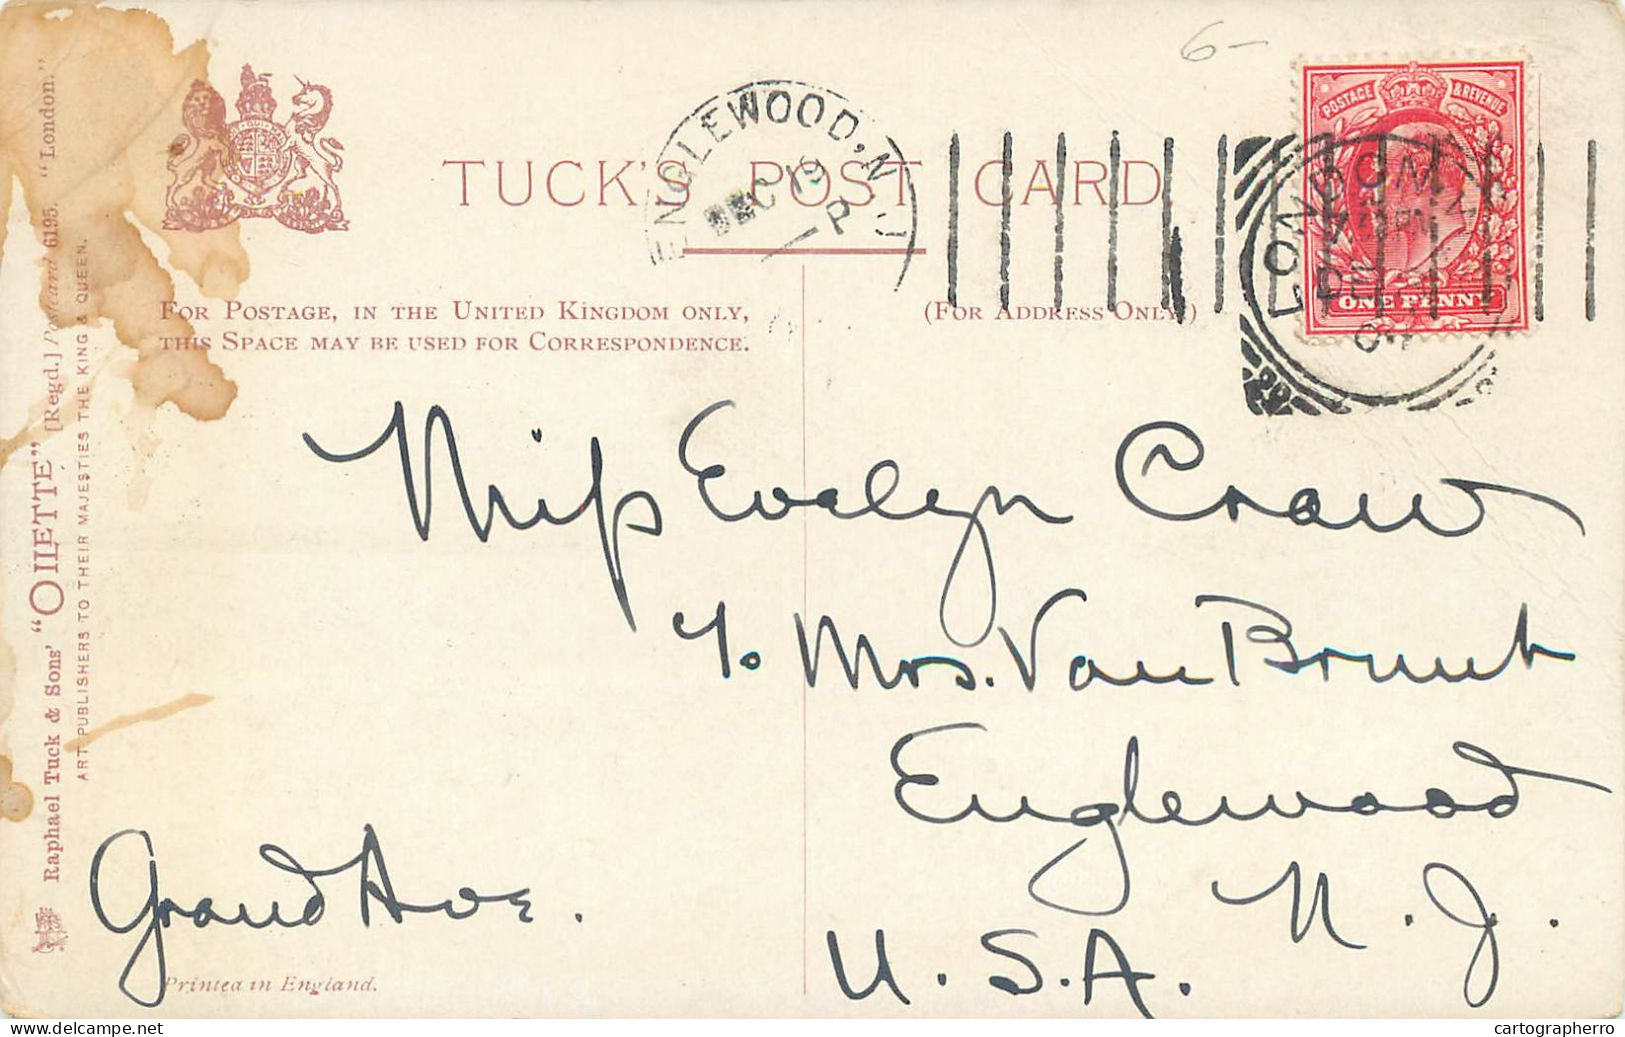 6-
TUCK'S POST CARD.
POSTAGE & REVENUE
ONE PENNY
ENGLEWOOD, N.J.
DEC 19
P
LONDON
FOR POSTAGE, IN THE UNITED KINGDOM ONLY,
THIS SPACE MAY BE USED FOR CORRESPONDENCE.
(FOR ADDRESS ONLY.)
Miss Evelyn Craw
c/o Mrs. Van Brunt
Englewood
N. J.
U. S. A.
Grand Ave.
Printed in England.
Raphael Tuck & Sons' "OILETTE" [Regd.] Postcard 6195. "London."
ART PUBLISHERS TO THEIR MAJESTIES THE KING & QUEEN.
www.delcampe.net
cartographerro